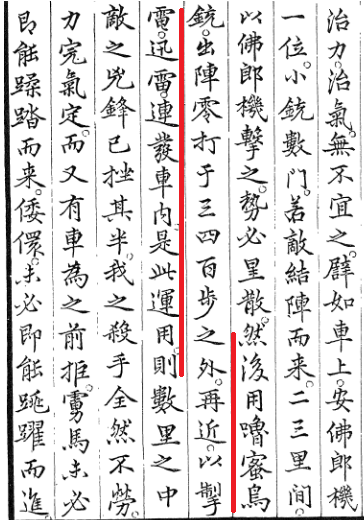 治力治氣無不宜之譬如車上安佛郎機
一位小銃數門若敵結陣而来二三里間
以佛郎機擊之勢必星散然後用嚕蜜鳥
銃出陣零打于三四百步之外再近以掣
電迅雷連發車内是此運用則數里之中
敵之兇鋒已挫其半我之殺手全然不勞
力完氣定而又有車為之前拒虜馬未必
即能蹂踏而来倭儇未必即能跳躍而進